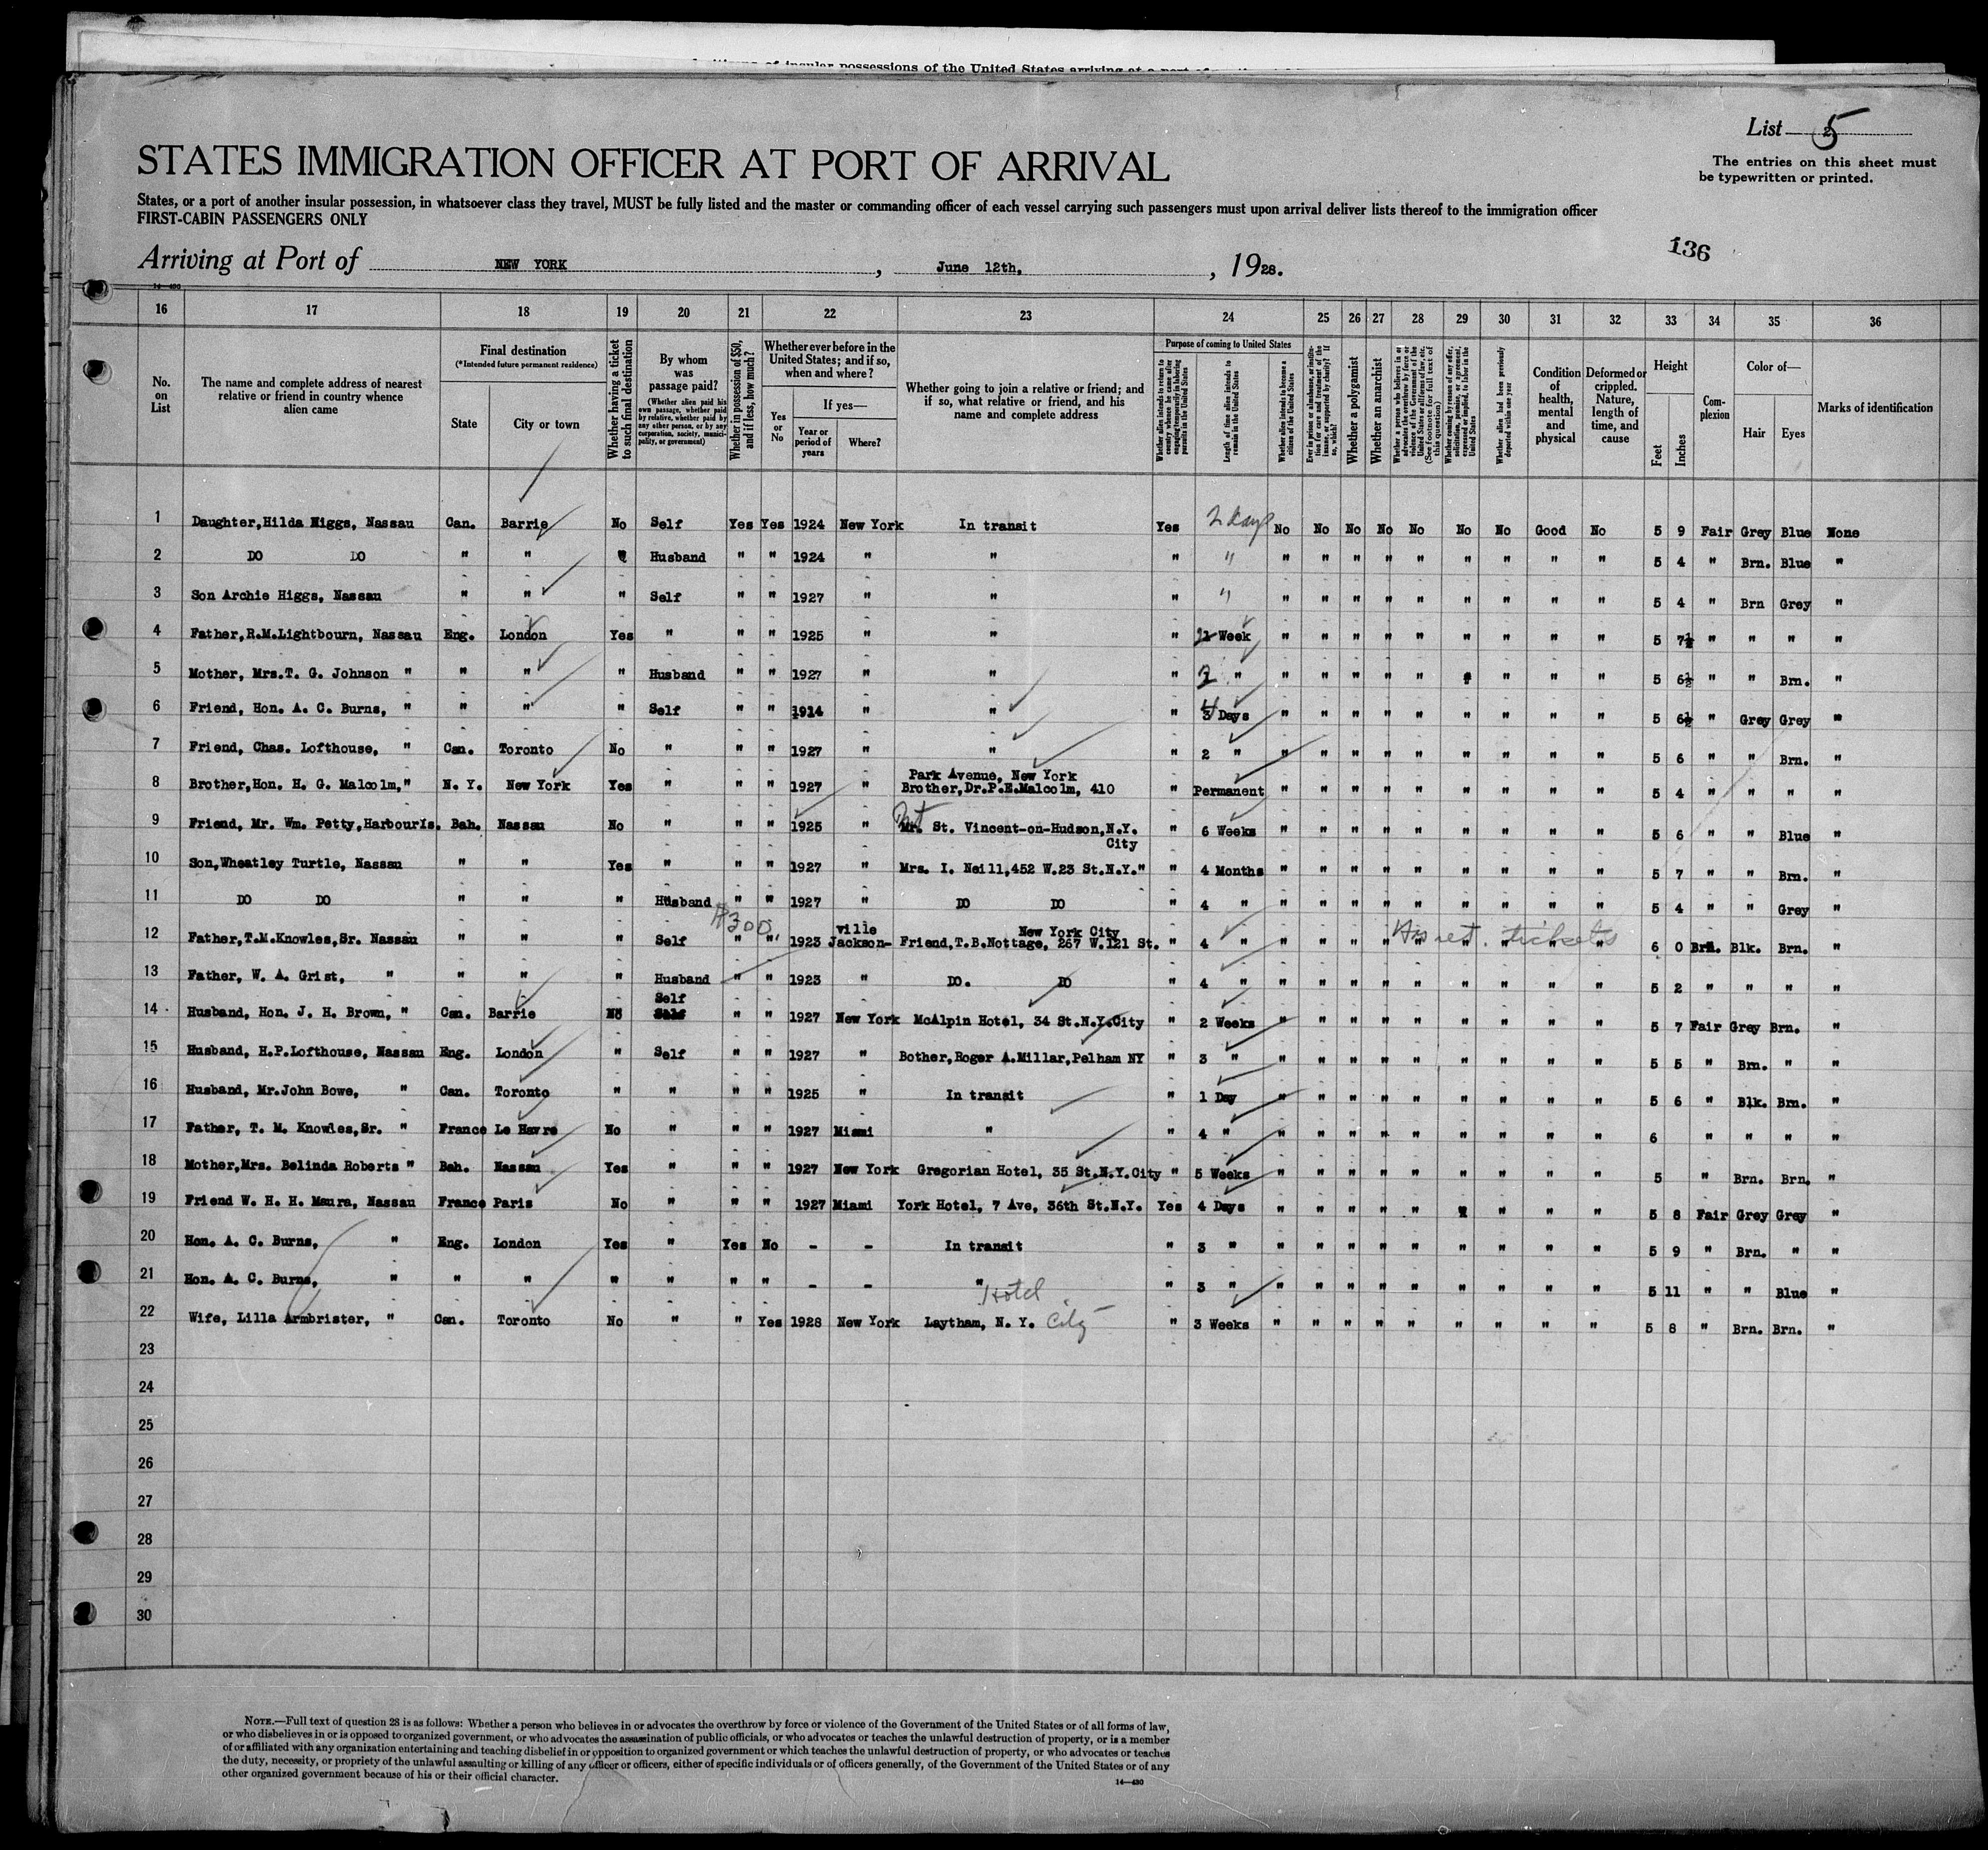 List 5
The entries on this sheet must
be typewritten or printed.
STATES IMMIGRATION OFFICER AT PORT OF ARRIVAL
States, or a port of another insular possession, in whatsoever class they travel, MUST be fully listed and the master or commanding officer of each vessel carrying such passengers must upon arrival deliver lists thereof to the immigration officer
FIRST-CABIN PASSENGERS ONLY
136
Arriving at Port of NEW YORK, June 12th, 1928.
14—480
16 17 18 19 20 21 22 23 24 25 26 27 28 29 30 31 32 33 34 35 36
No. on List
The name and complete address of nearest relative or friend in country whence alien came
Final destination
(*Intended future permanent residence)
State
City or town
Whether having a ticket to such final destination
By whom was passage paid?
(Whether alien paid his own passage, whether paid by relative, whether paid by any other person, or by any corporation, society, municipality, or government)
Whether in possession of $50, and if less, how much?
Whether ever before in the United States; and if so, when and where?
Yes or No
If yes—
Year or period of years
Where?
Whether going to join a relative or friend; and if so, what relative or friend, and his name and complete address
Purpose of coming to United States
Whether alien intends to return to country whence he came after engaging temporarily in laboring pursuits in the United States
Length of time alien intends to remain in the United States
Whether alien intends to become a citizen of the United States
Ever in prison or almshouse, or institution for care and treatment of the insane, or supported by charity? If so, which?
Whether a polygamist
Whether an anarchist
Whether a person who believes in or advocates the overthrow by force or violence of the Government of the United States or all forms of law, etc. (See footnote for full text of this question)
Whether coming by reason of any offer, solicitation, promise, or agreement, expressed or implied, to labor in the United States
Whether alien had been previously deported within one year
Condition of health, mental and physical
Deformed or crippled. Nature, length of time, and cause
Height
Feet
Inches
Complexion
Color of—
Hair
Eyes
Marks of identification
1 Daughter,Hilda Higgs, Nassau Can. Barrie No Self Yes Yes 1924 New York In transit Yes 2 days No No No No No No No Good No 5 9 Fair Grey Blue None
2 DO DO " " " Husband " " 1924 " " " " " " " " " " " " " 5 4 " Brn. Blue "
3 Son Archie Higgs, Nassau " " " Self " " 1927 " " " " " " " " " " " " " 5 4 " Brn Grey "
4 Father,R.M.Lightbourn, Nassau Eng. London Yes " " " 1925 " " " Week " " " " " " " " " 5 7½ " " " "
5 Mother, Mrs.T. G. Johnson " " " " Husband " " 1927 " " " " " " " " " " " " " 5 6½ " " Brn. "
6 Friend, Hon. A. C. Burns, " " " " Self " " 1914 " " " Days " " " " " " " " " 5 6½ " Grey Grey "
7 Friend, Chas. Lofthouse, " Can. Toronto No " " " 1927 " " " 2 " " " " " " " " " " 5 6 " " Brn. "
Park Avenue, New York
8 Brother,Hon. H. G. Malcolm," N. Y. New York Yes " " " 1927 " Brother,Dr.P.E.Malcolm, 410 " Permanent " " " " " " " " " 5 4 " " " "
9 Friend, Mr. Wm. Petty,HarbourIs. Bah. Nassau No " " " 1925 " Mt. St. Vincent-on-Hudson,N.Y. " 6 Weeks " " " " " " " " " 5 6 " " Blue "
City
10 Son,Wheatley Turtle, Nassau " " Yes " " " 1927 " Mrs. I. Neill,452 W.23 St.N.Y." " 4 Months " " " " " " " " " 5 7 " " Brn. "
11 DO DO " " " Husband " " 1927 " DO DO " 4 " " " " " " " " " " 5 4 " " Grey "
$300. ville New York City
12 Father,T.M.Knowles,Sr. Nassau " " " Self " " 1923 Jackson- Friend,T.B.Nottage, 267 W.121 St. " 4 " " " " " " " " " " 6 0 Brn. Blk. Brn. "
ret. tickets
13 Father, W. A. Grist, " " " " Husband " " 1923 " DO. DO " 4 " " " " " " " " " " 5 2 " " " "
Self
14 Husband, Hon. J. H. Brown, " Can. Barrie No Self " " 1927 New York McAlpin Hotel, 34 St.N.Y.City " 2 Weeks " " " " " " " " " 5 7 Fair Grey Brn. "
15 Husband, H.P.Lofthouse, Nassau Eng. London " Self " " 1927 " Bother,Roger A.Millar,Pelham NY " 3 " " " " " " " " " " 5 5 " Brn. " "
16 Husband, Mr.John Bowe, " Can. Toronto " " " " 1925 " In transit " 1 Day " " " " " " " " " 5 6 " Blk. Brn. "
17 Father, T. M. Knowles,Sr. " France Le Havre No " " " 1927 Miami " " 4 " " " " " " " " " " 6 " " " "
18 Mother,Mrs. Belinda Roberts " Bah. Nassau Yes " " " 1927 New York Gregorian Hotel, 35 St.N.Y.City " 5 Weeks " " " " " " " " " 5 " Brn. Brn. "
19 Friend W. H. H. Maura, Nassau France Paris No " " " 1927 Miami York Hotel, 7 Ave, 36th St.N.Y. Yes 4 Days " " " " " " " " " 5 8 Fair Grey Grey "
20 Hon. A. C. Burns, " Eng. London Yes " Yes No - - In transit " 3 " " " " " " " " " " 5 9 " Brn. " "
21 Hon. A. C. Burns, " " " " " " " - - " " 3 " " " " " " " " " " 5 11 " " Blue "
Hotel
22 Wife, Lilla Armbrister, " Can. Toronto No " " Yes 1928 New York Laytham, N. Y. City " 3 Weeks " " " " " " " " " 5 8 " Brn. Brn. "
23
24
25
26
27
28
29
30
NOTE.—Full text of question 28 is as follows: Whether a person who believes in or advocates the overthrow by force or violence of the Government of the United States or of all forms of law,
or who disbelieves in or is opposed to organized government, or who advocates the assassination of public officials, or who advocates or teaches the unlawful destruction of property, or is a member
of or affiliated with any organization entertaining and teaching disbelief in or opposition to organized government or which teaches the unlawful destruction of property, or who advocates or teaches
the duty, necessity, or propriety of the unlawful assaulting or killing of any officer or officers, either of specific individuals or of officers generally, of the Government of the United States or of any
other organized government because of his or their official character.
14—480